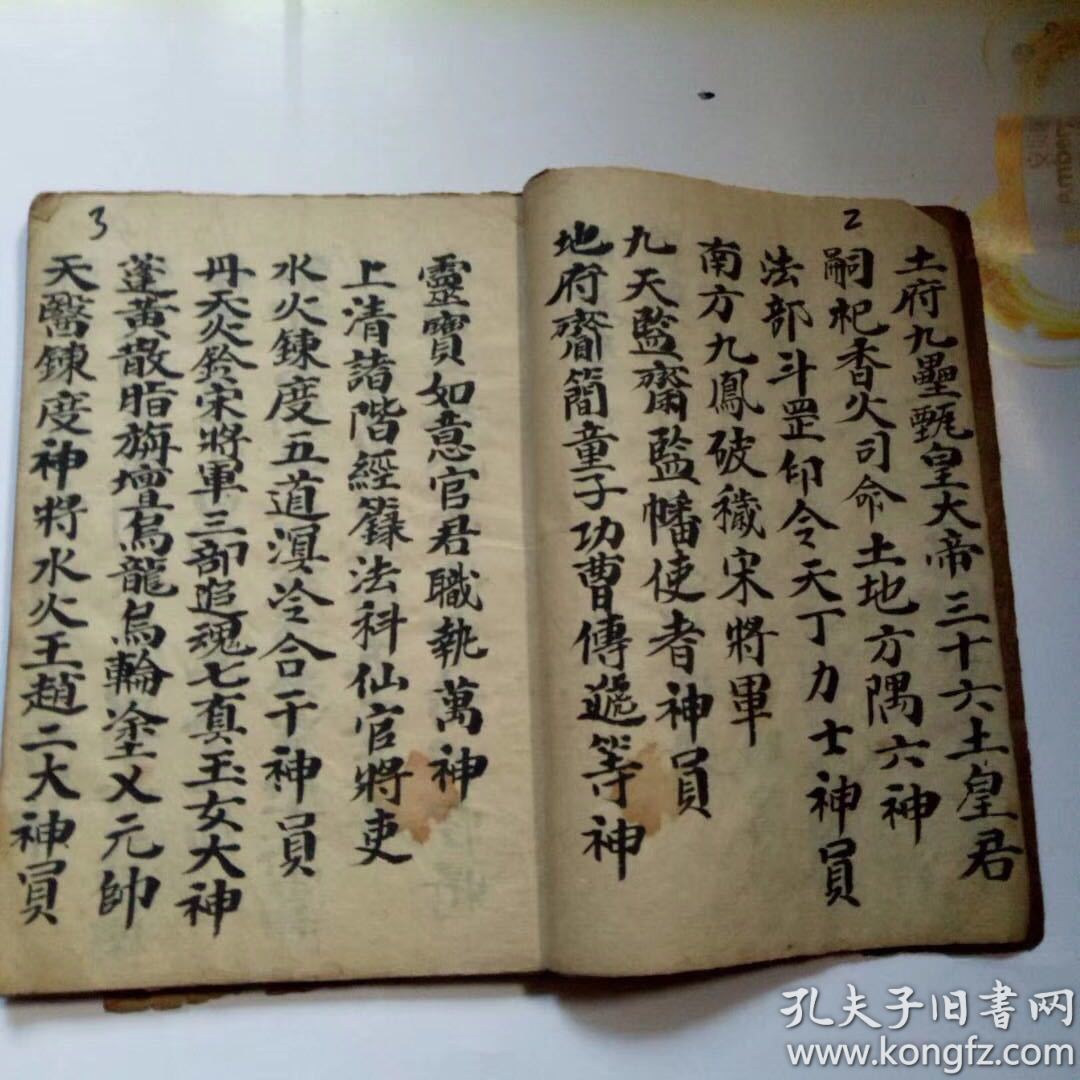 2
土府九壘甄皇大帝三十六土皇君
嗣祀香火司命土地方隅六神
法部斗罡印令天丁力士神員
南方九鳳破穢宋將軍
九天監齋監幡使者神員
地府齋簡童子功曹傳遞等神
3
靈寶如意官君職執萬神
上清諸階經籙法科仙官將吏
水火鍊度五道溟冷合干神員
丹天火鈴宋將軍三部追魂七真玉女大神
蓬黃散脂旃壇烏龍烏輪塗乂元帥
天醫鍊度神將水火王趙二大神員
孔夫子旧书网
www.kongfz.com